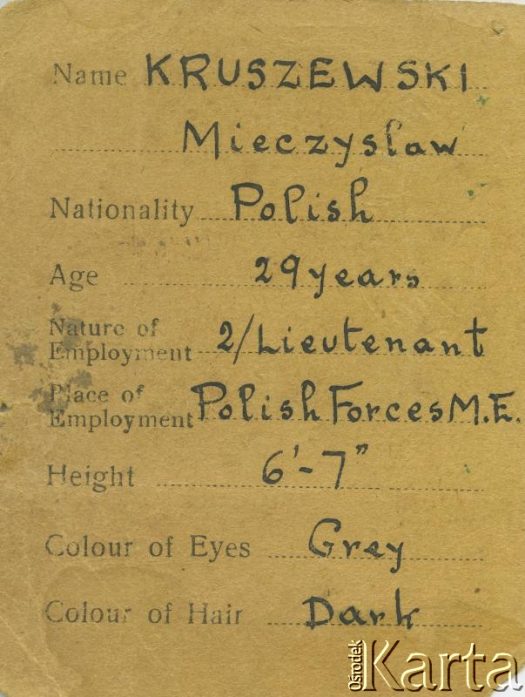 Name KRUSZEWSKI
Mieczyslaw
Nationality Polish
Age 29 years
Nature of
Employment 2/Lieutenant
Place of
Employment Polish Forces M.E.
Height 6'-7"
Colour of Eyes Grey
Colour of Hair Dark
Ośrodek Karta